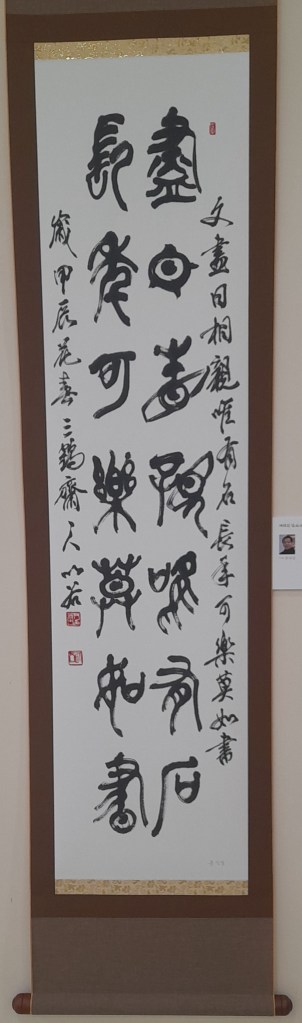 文盡日相親唯有石長年可樂莫如書
盡日相親唯有石
長年可樂莫如書
歲甲辰花春三鶴齋人